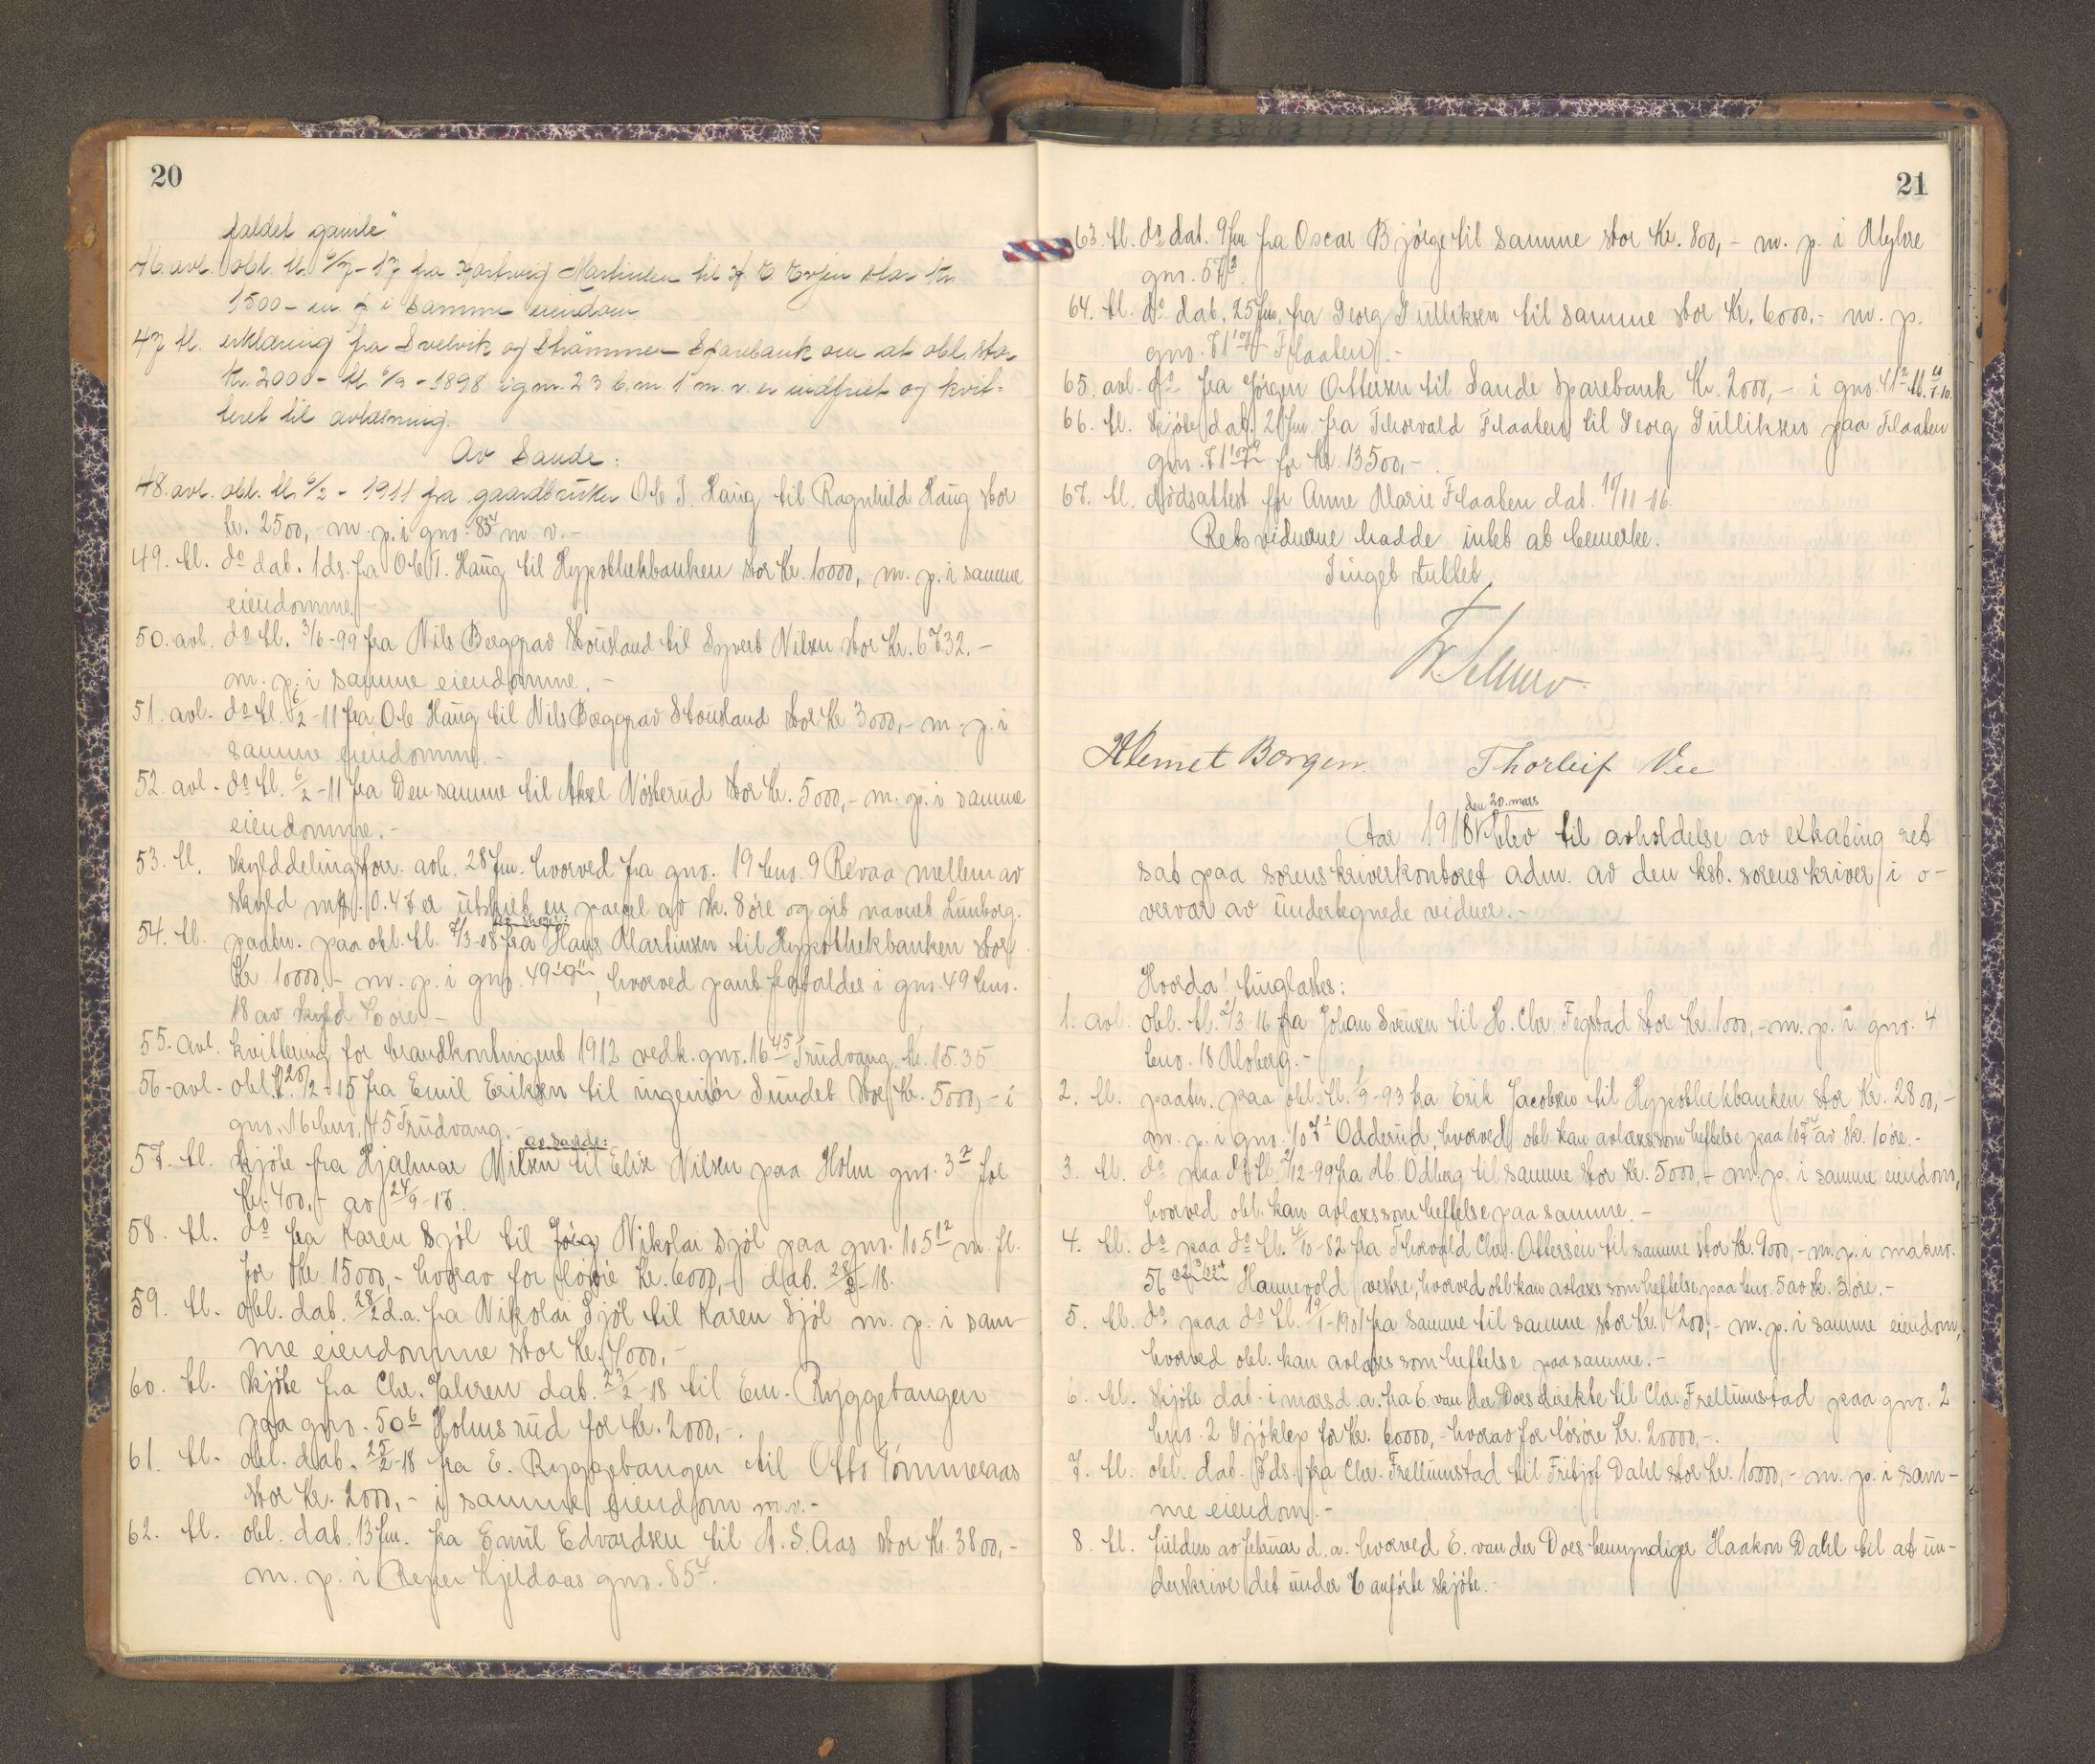 20
faldet gamle"
46. avl. obl. tl. 6/7-17 fra Hartvig Martinsen til H. E. Evjen stor kr.
1500- m p i samme eiendom
47 tl. erklæring fra Svelvik og Strømmen Sparebank om at obl. stor
kr. 2000- tl. 6/9-1898 i gnr. 23 b.nr. 1 m. v. er indfriet og kvit-
teret til avlæsning.
Av Sande:
48. avl. obl. tl. 6/2-1911 fra gaardbruker Ole T. Haug til Ragnhild Haug stor
kr. 2500,- m. p. i gnr. 85⁴ m v.-
49. tl. do dat. 1 ds. fra Ole T. Haug til Hypothekbanken stor Kr. 10000, m. p. i samme
eiendomme.-
50. avl. do tl. 3/6-99 fra Nils Berggrav Stousland til Syvert Nilsen stor Kr. 6732.-
m. p. i samme eiendomme.-
51. avl. do tl. 6/2-11 fra Ole Haug til Nils Berggrav Stousland stor Kr 3000,- m. p. i
samme eiendomme.-
52. avl. do tl. 6/2-11 fra Den samme til Aksel Nösterud stor Kr. 5000,- m. p. i samme
eiendomme.-
53. tl. skylddelingsforr. avh. 28 fm. hvorved fra gnr. 19 bnr. 9 Revaa mellem av
skyld mk. 0.47 er utskilt en parcel av sk. 8 øre og git navnet Lunborg.
54. tl. paatn. paa obl. tl. 7/3-08 fra Hans Martinsen til Hypothekbanken stor
Kr 10000,- m. p. i gnr. 49, hvorved pant frafaldes i gnr. 49 bnr.
18 av skyld 6 øre.-
55. avl. kvittering for brandkontingent 1912 vedk. gnr. 16 45 Trudvang. kr. 15.35
56-avl- obl. tl. 26/2-15 fra Emil Eriksen til ingeniör Sundet stor Kr. 5000,- i
gnr. 16 bnr. 45 Trudvang.-
av Sande:
57. tl. skjöte fra Hjalmar Nilsen til Elise Nilsen paa Holm gnr. 3² for
kr. 400,- av 24/9-17.
58. tl. do fra Karen Sjöl til Nikolai Sjöl paa gnr. 105¹² m. fl.
for Kr. 15000,- hvorav for lösöre Kr. 6000,- dat. 28/2-18.
59. tl. obl. dat. 28/2 d.a. fra Nikolai Sjöl til Karen Sjöl m. p. i sam-
me eiendomme stor Kr. 4000,-
60. tl. skjöte fra Chr. Jahren dat. 23/2-18 til Em. Ryggetangen
paa gnr. 50⁶ Holmsrud for Kr. 2000,-.
61. tl. obl. dat. 25/2-18 fra E. Ryggetangen til Otto Tömmeraas
stor Kr. 2000,- i samme eiendom m.v.-
62. tl. obl. dat. 13 fm. fra Emil Edvardsen til A. S. Aas stor Kr. 3800,-
m. p. i Kjeldaas gnr. 85⁴.
21
63. tl. do dat. 9 fm fra Oscar Björge til samme stor Kr. 800,- m. p. i
gnr. 57³.
64. tl. do dat. 25 fm. fra Georg Gulliksen til samme stor Kr. 6000,- m. p.
gnr. 71 Flaaten.-
65. avl. do fra Jörgen Ottersen til Sande Sparebank Kr. 2000,- i gnr. 41²
66. tl. skjöte dat. 21 fm. fra Thorvald Flaaten til Georg Gulliksen paa Flaaten
gnr. 71 for Kr. 13500,-
67. tl. dødsattest for Anne Marie Flaaten dat. 10/11-16.
Retsvidnerne hadde intet at bemerke.
Tinget sluttet
Klemet Borgen Thorleif Vee
den 20. mars
Aar 1918 blev til avholdelse av ekstrating ret
sat paa sorenskriverkontoret adm. av den kst. sorenskriver i o-
vervær av undertegnede vidner.-
Hvorda! tinglæstes:
1. avl. obl. tl. 2/3 16 fra Johan Svensen til H. Chr. Fegstad stor Kr. 1000,- m. p. i gnr. 4
bnr. 18 Moberg.-
2. tl. paatn. paa obl. tl. 6/9-93 fra Erik Jacobsen til Hypothekbanken stor Kr. 2800,-
m. p. i gnr. 107¹ Odderud, hvorved obl. kan avlæses som heftelse paa 107 av sk. 10 øre.-
3. tl. do paa do tl. 2/12-99 fra Ab. Odberg til samme stor Kr. 5000,- m. p. i samme eiendom,
hvorved obl. kan avlæses som heftelse paa samme.-
4. tl. do paa do tl. 4/10-82 fra Thorvald Chr. Ottersen til samme stor Kr. 9000,- m. p. i matnr.
56 Hannevold vestre, hvorved obl. kan avlæses som heftelse paa bnr. 5 av sk. 3 øre.-
5. tl. do paa do tl. 19/1-1901 fra samme til samme stor Kr. 4200,- m. p. i samme eiendom,
hvorved obl. kan avlæses som heftelse paa samme.-
6. tl. skjöte dat. i mars d. a. fra E. van der Does direkte til Chr. Frellumstad paa gnr. 2
bnr. 2 Gjöklep for Kr. 60000,- hvorav for lösöre Kr. 20000,-.
7. tl. obl. dat. 7 ds. fra Chr. Frellumstad til Fritjof Dahl stor Kr. 10000,- m. p. i sam-
me eiendom.-
8. tl. fuldm av februar d. a. hvorved E. van der Does bemyndiger Haakon Dahl til at un-
derskrive det under 6 anförte skjöte.-